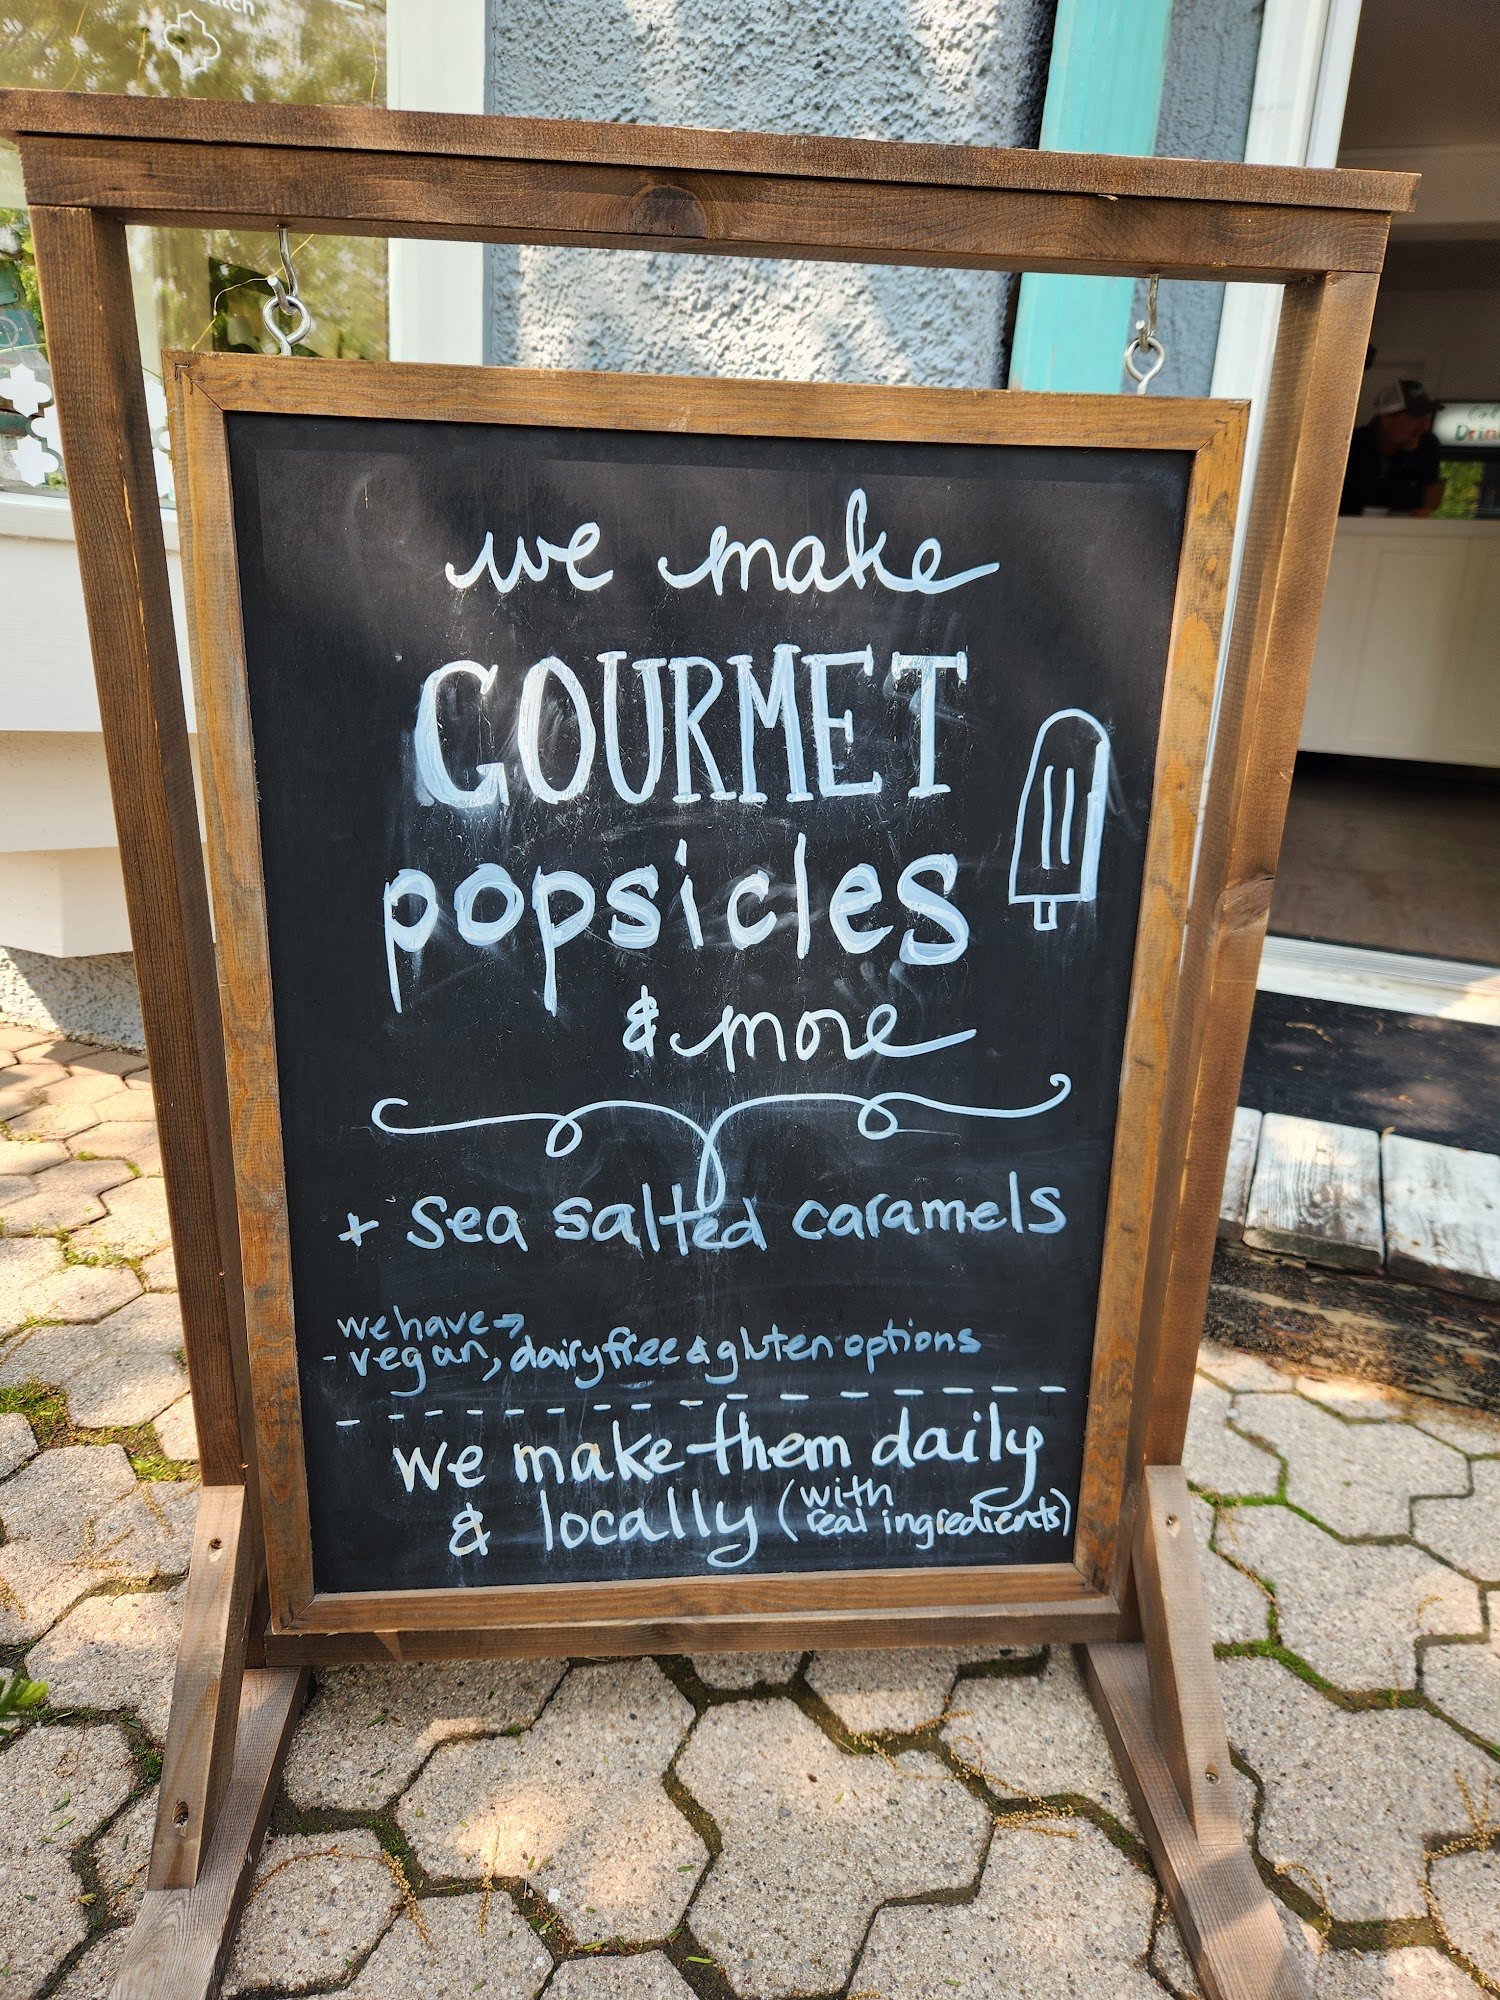 we make
GOURMET
popsicles
& more
+ sea salted caramels
we have →
- vegan, dairy free & gluten options
we make them daily
& locally (with
real ingredients)